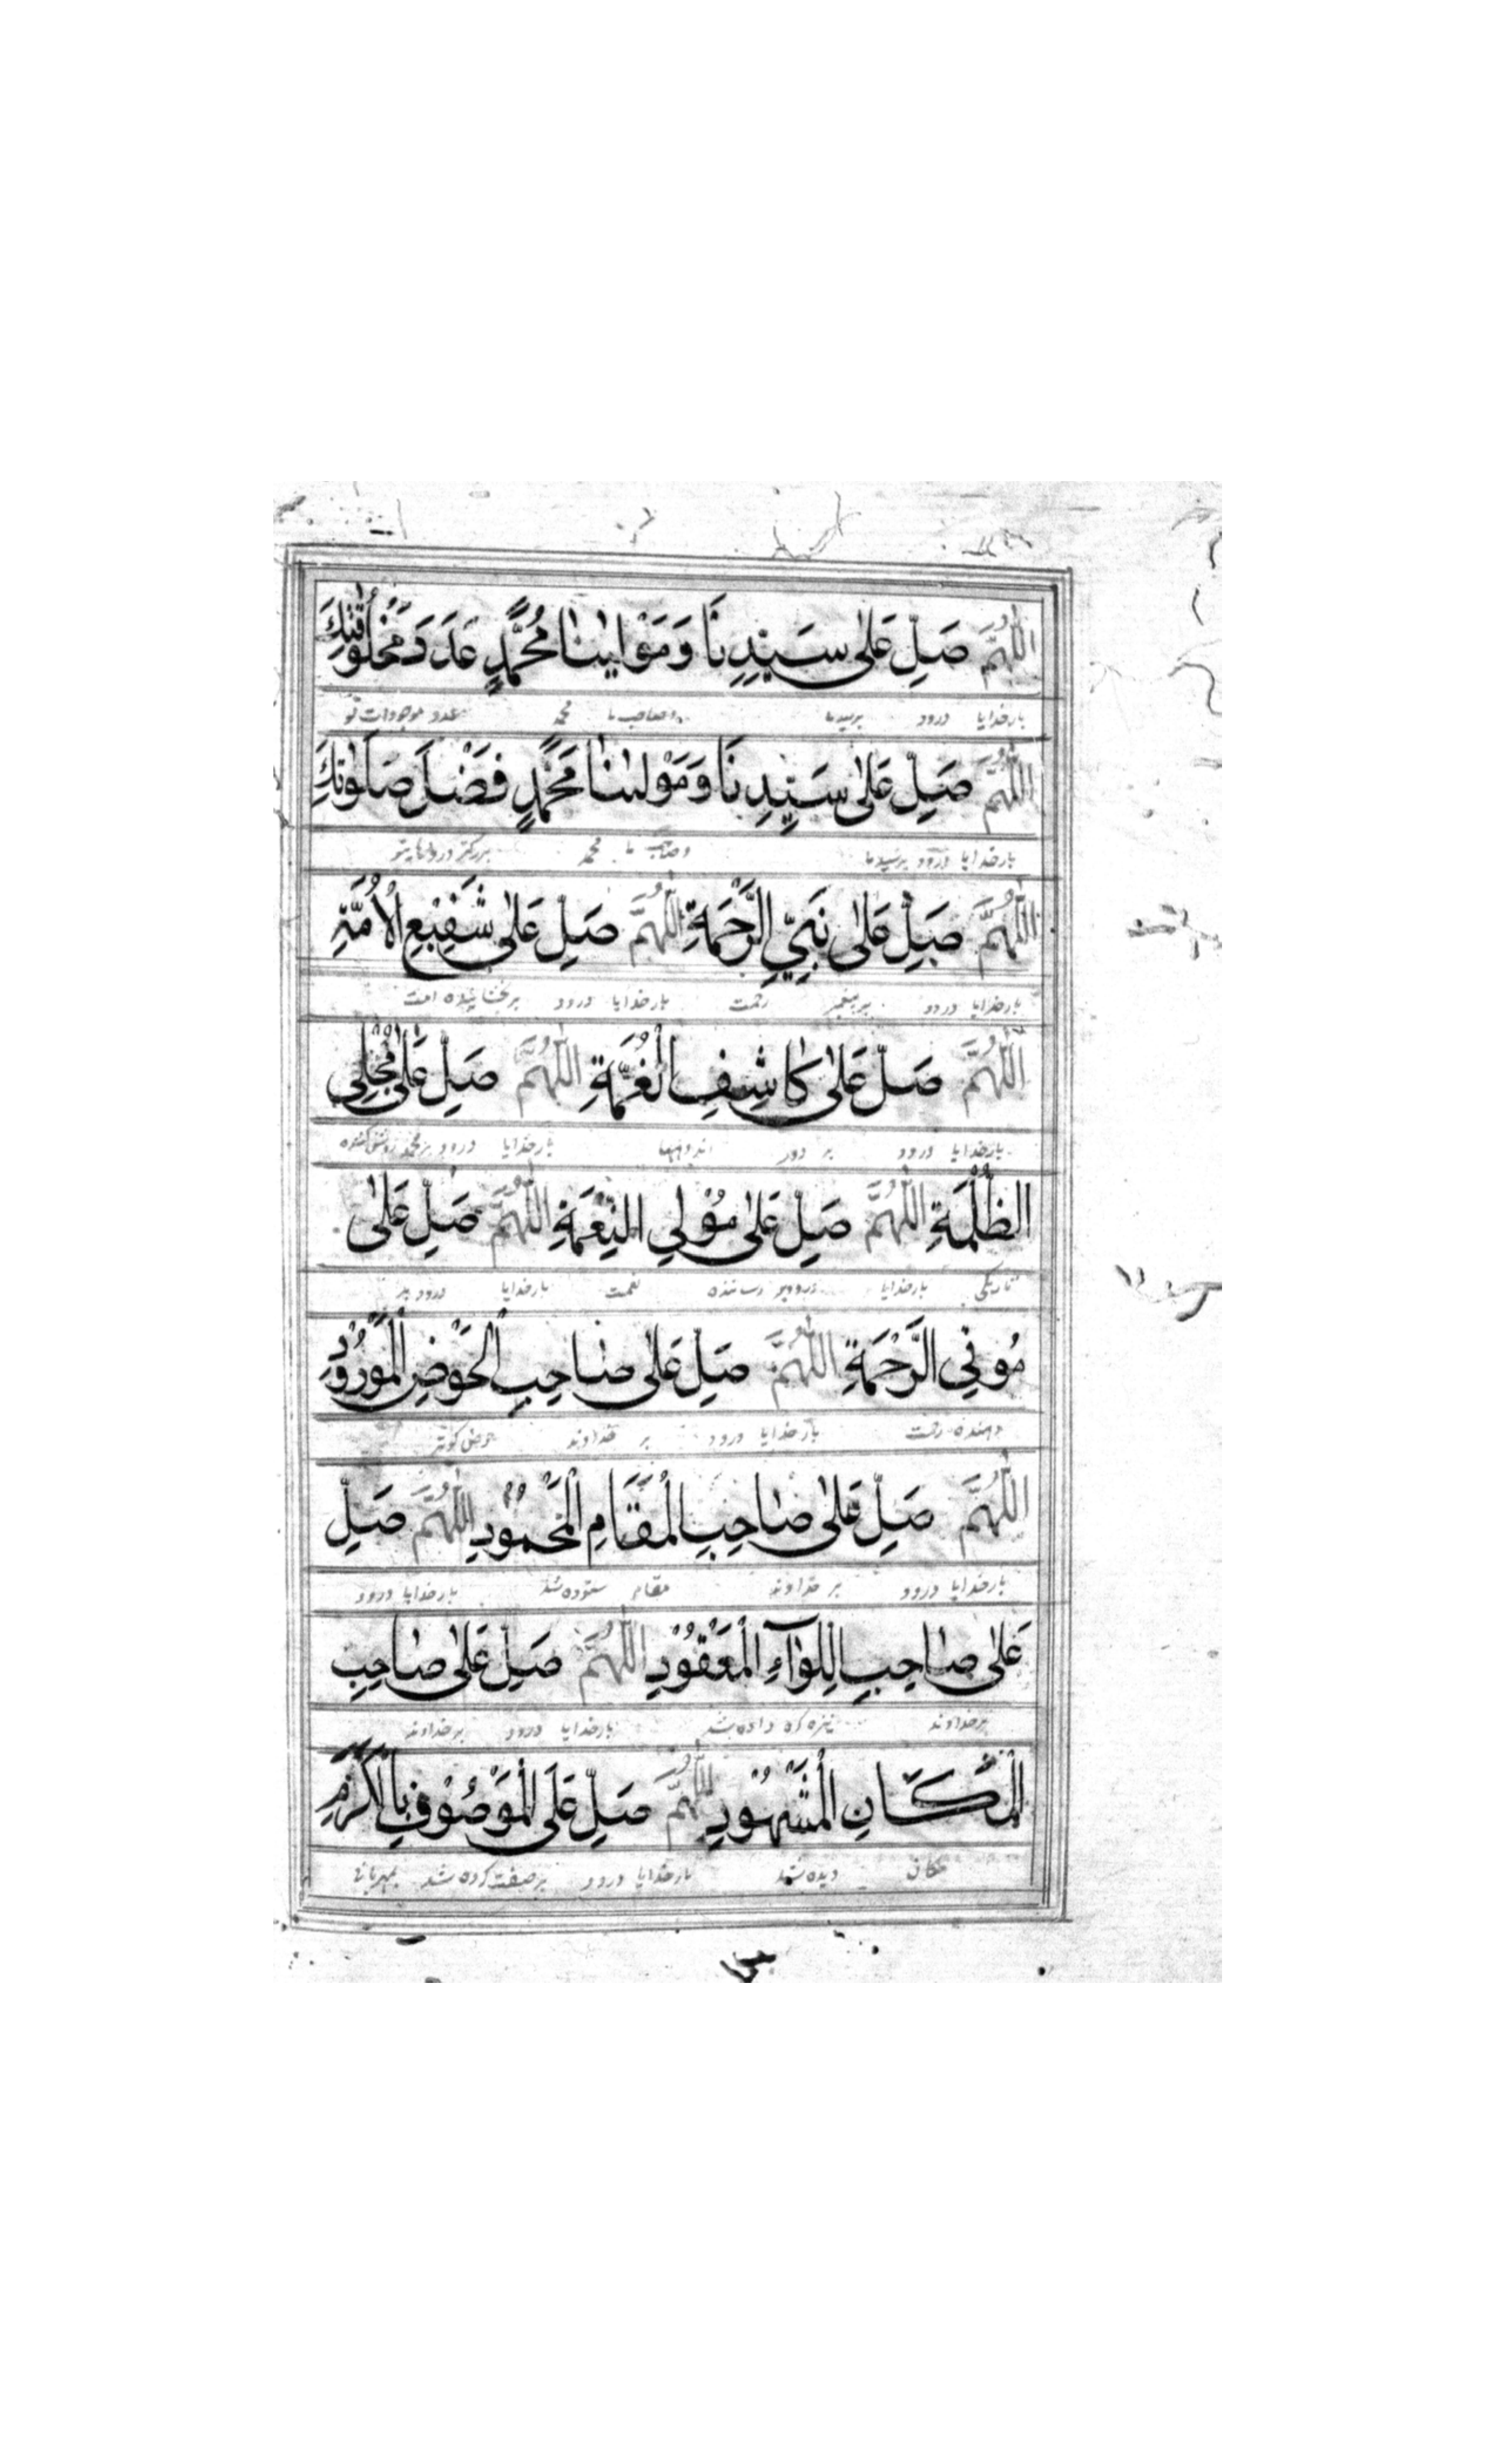 اللّٰهُمَّ صَلِّ عَلٰى سَيِّدِنَا وَمَوْلٰينَا مُحَمَّدٍ عَدَدَ مَخْلُوْقَاتِكَ
بارخدایا درود برسیدما وصاحب ما محمد عدد موجودات تو
اللّٰهُمَّ صَلِّ عَلٰى سَيِّدِنَا وَمَوْلٰىنَا مُحَمَّدٍ فَضْلَ صَلَوٰتِكَ
بارخدایا درود برسیدما وصاحب ما محمد بزرکتر درودهایتو
اللّٰهُمَّ صَلِّ عَلٰى نَبِيِّ الرَّحْمَةِ اللّٰهُمَّ صَلِّ عَلٰى شَفِيْعِ الْاُمَّةِ
بارخدایا درود بر پیغمبر رحمت بارخدایا درود بربخشاینده امت
اللّٰهُمَّ صَلِّ عَلٰى كَاشِفِ الْغُمَّةِ اللّٰهُمَّ صَلِّ عَلٰى مُجْلِي
بارخدایا درود بر دور اندوهها بارخدایا درود بر محمد روشن کننده
الظُّلْمَةِ اللّٰهُمَّ صَلِّ عَلٰى مُوْلِي النِّعْمَةِ اللّٰهُمَّ صَلِّ عَلٰى
تاریکی بارخدایا درود بر رساننده نعمت بارخدایا درود بر
مُوْتِي الرَّحْمَةِ اللّٰهُمَّ صَلِّ عَلٰى صَاحِبِ الْحَوْضِ الْمَوْرُوْدِ
دهنده رحمت بارخدایا درود بر خداوند حوض کوثر
اللّٰهُمَّ صَلِّ عَلٰى صَاحِبِ الْمَقَامِ الْمَحْمُوْدِ اللّٰهُمَّ صَلِّ
بارخدایا درود بر خداوند مقام ستوده شد بارخدایا درود
عَلٰى صَاحِبِ اللِّوَآءِ الْمَعْقُوْدِ اللّٰهُمَّ صَلِّ عَلٰى صَاحِبِ
برخداوند نیزه کره داده شد بارخدایا درود برخداوند
الْمَكَانِ الْمَشْهُوْدِ اللّٰهُمَّ صَلِّ عَلَى الْمَوْصُوْفِ بِالْكَرَمِ
مکان دیده شد بارخدایا درود برصفت کرده شد بمهربانی